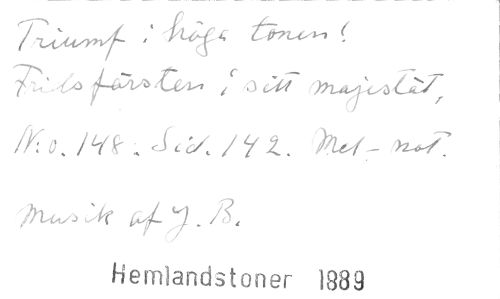 Triumf i höga tonen!
Fridsfursten i sitt majestät,
N:o. 148. Sid. 142. Mel- not.
Musik af J. B.
Hemlandstoner 1889